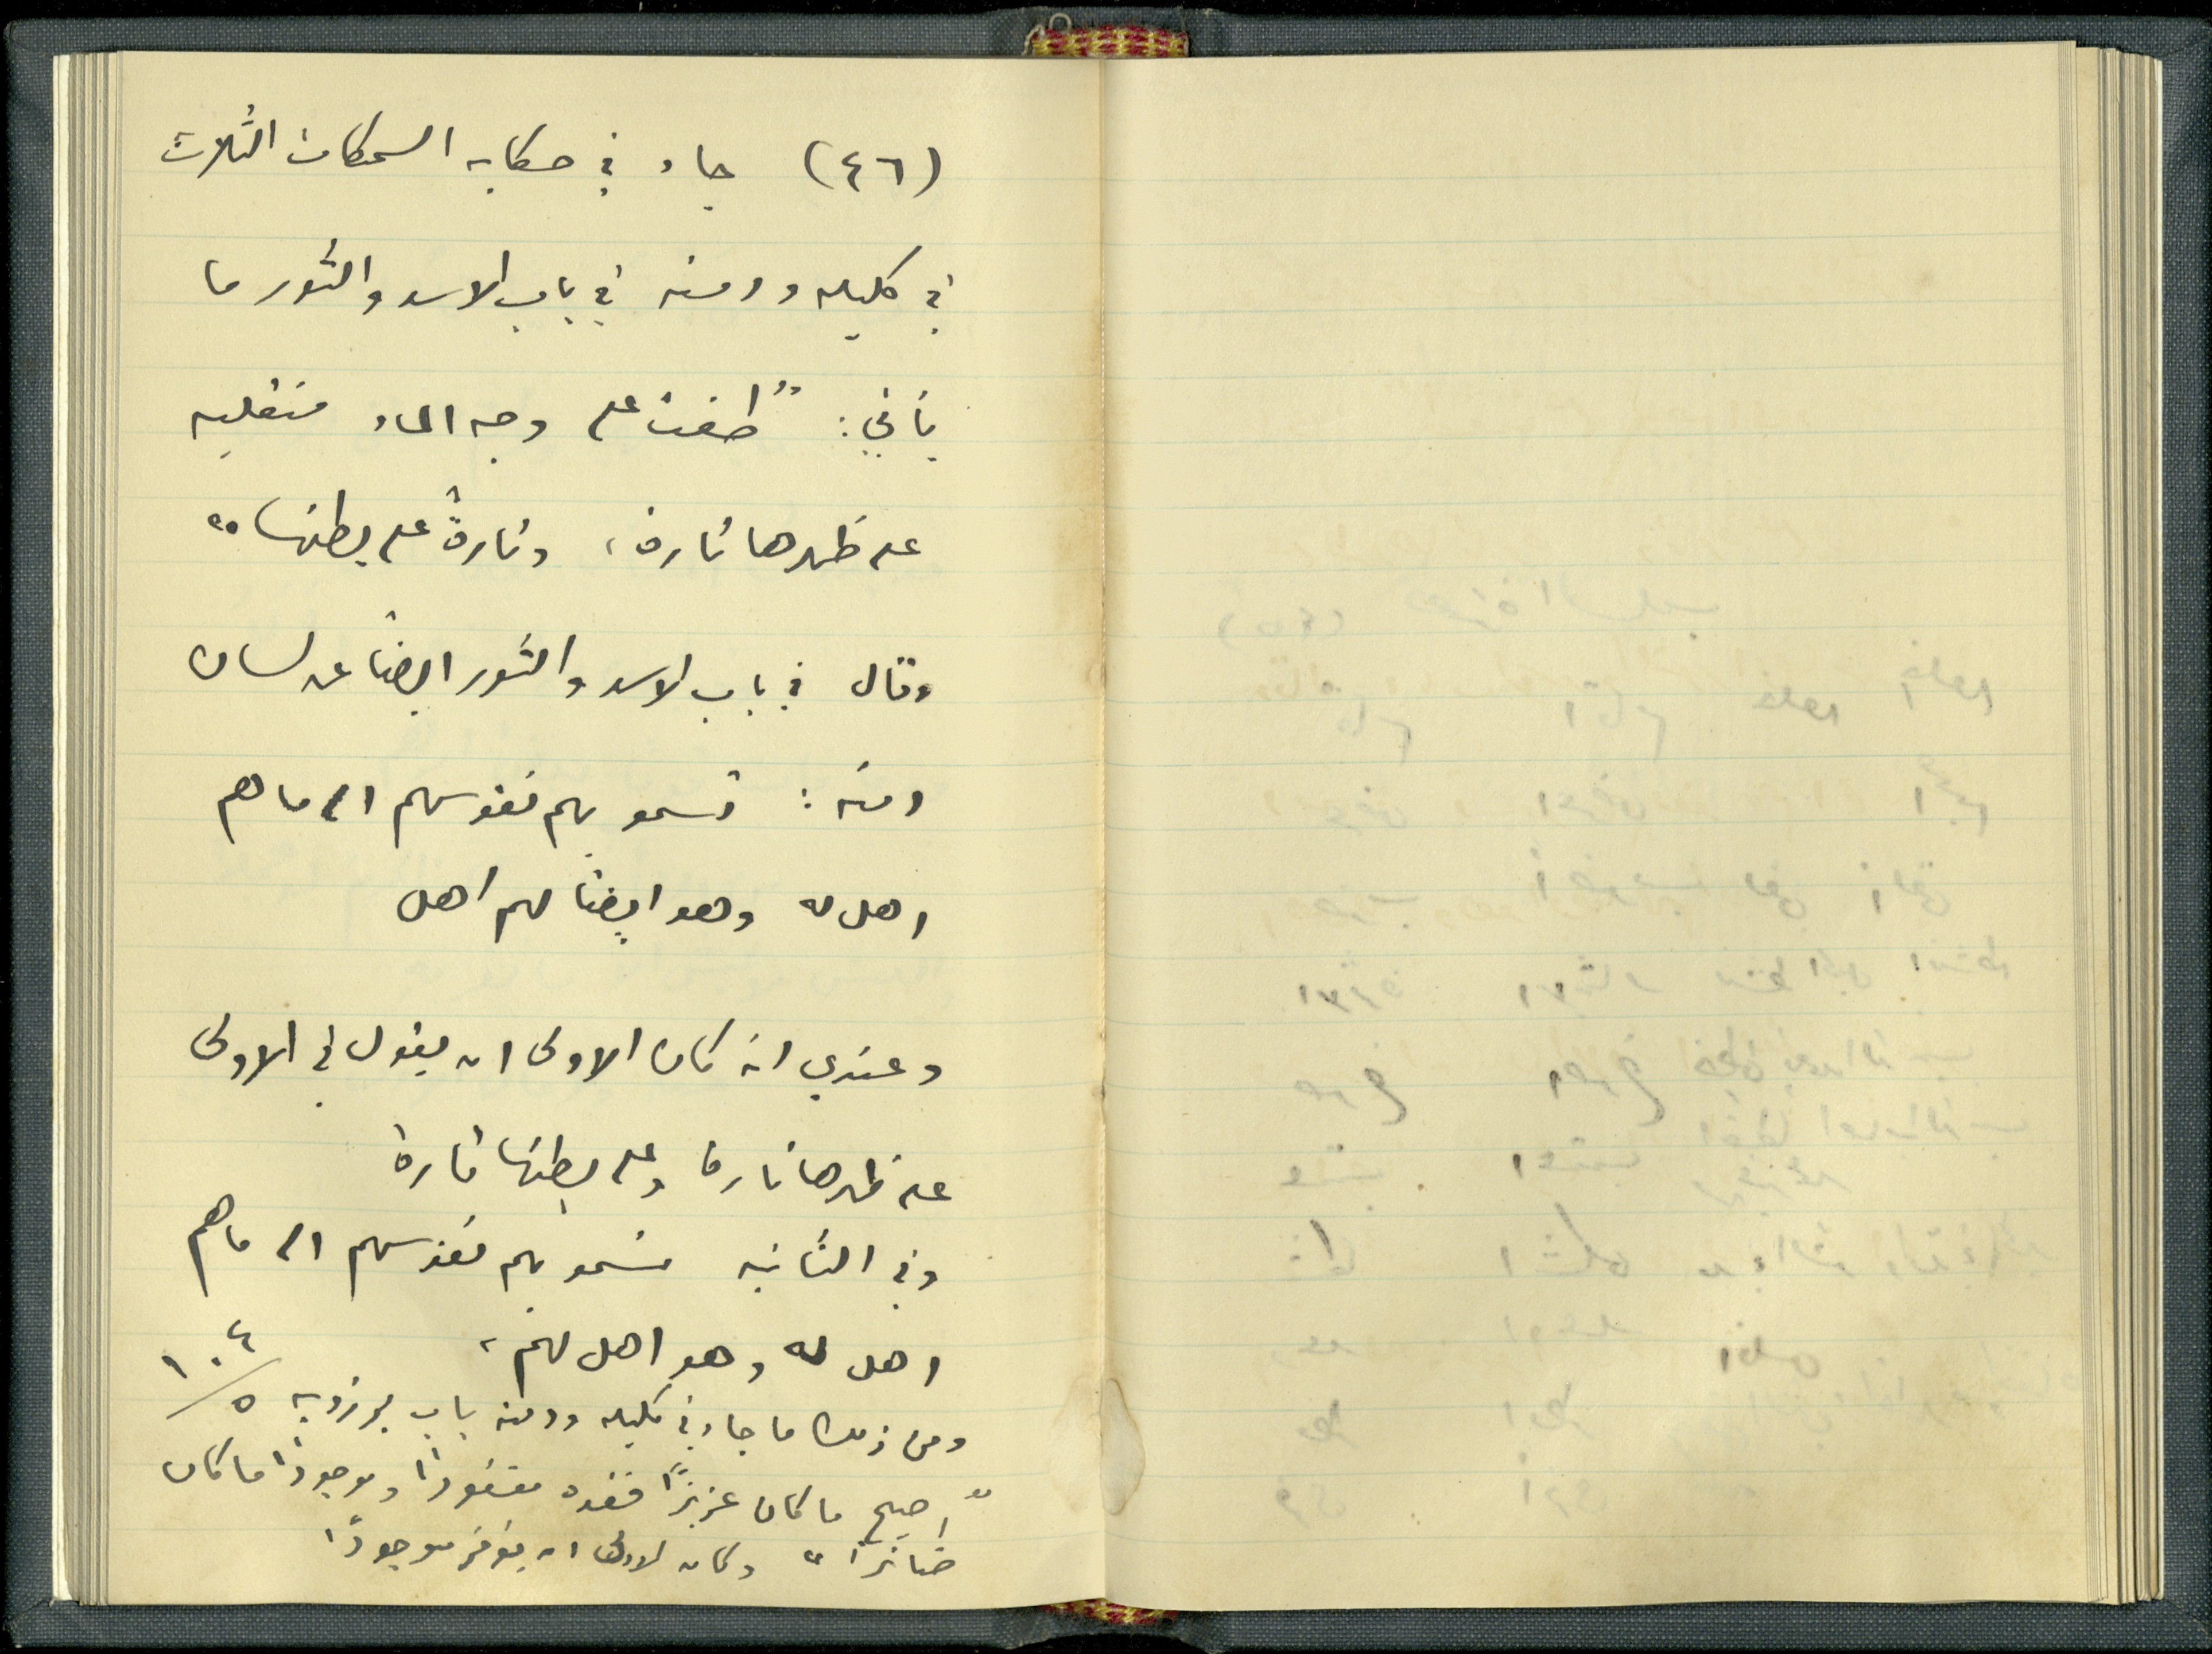 (٤٦) جاء في حكاية السمكات الثلاث
في كليله ودمنه في باب الاسد والثور ما
يأتي: "طفت على وجه الماء منقلبه
على ظهرها تارة، وتارةً على بطنها"
وقال في باب الاسد والثور ايضًا عن لسان
دمنه: تسمو بهم نفوسهم الى ما هم
اهل له وهو ايضًا لهم اهل
وعندي انه كان الاولى ان يقول في الاولى
على ظهرها تارة وعلى بطنها تارة
وفي الثانيه تسمو بهم نفوسهم الى ما هم
اهل له وهو اهل لهم،
١٠٤/٥
ومن ذلك ما جاء في كليله ودمنه باب برزويه
"اصبح ما كان عزيزًا فقده مفقودًا وموجودًا ما كان
ضائرًا" وكان الاولى ان يؤخر موجودًا